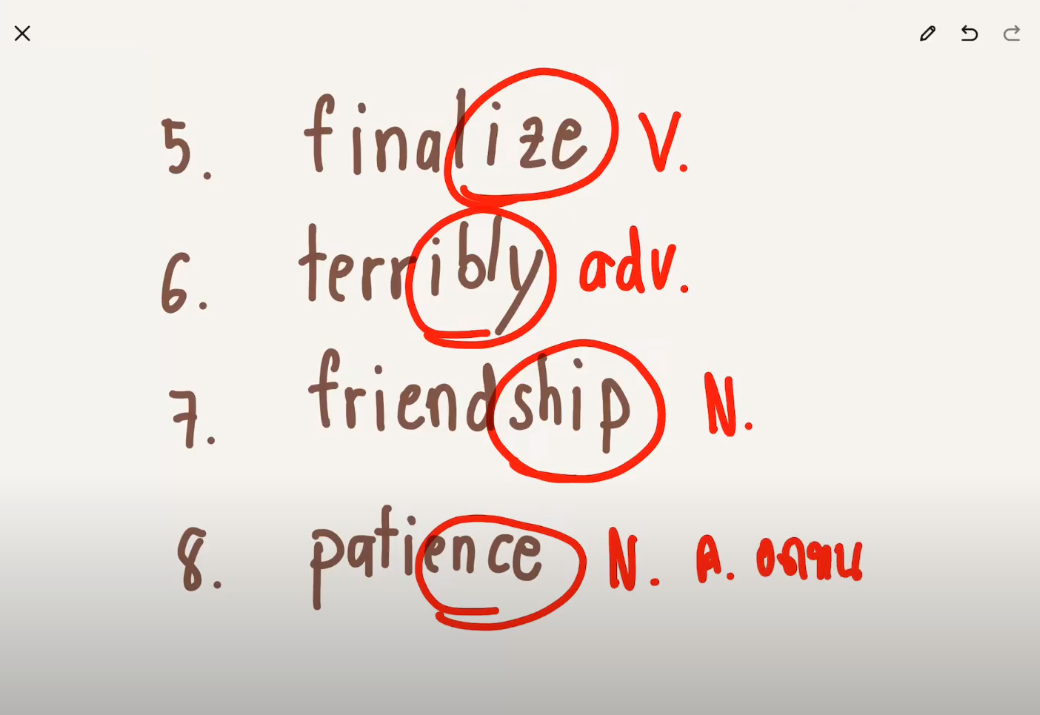 5. finalize V.
6. terribly adv.
7. friendship N.
8. patience N. ค. อดทน